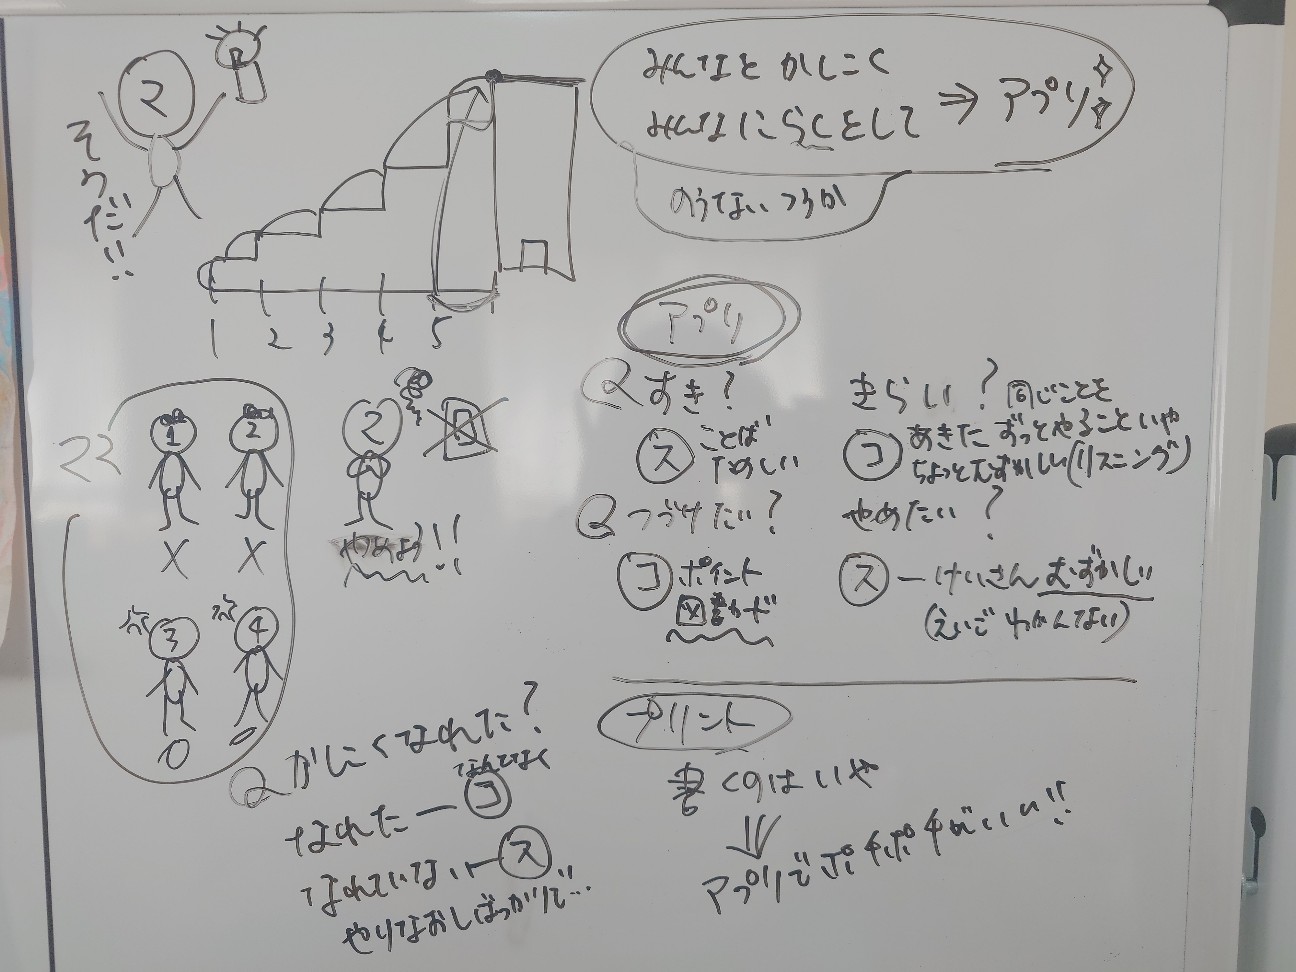 2
そうだ!!
1 2 3 4 5
ママ
1 2
× ×
3 4
2
やめよう!!
みんなと かしこく
みんなにらくをして ⇒ アプリ
のうないつうか
アプリ
Q すき?
ス ことば
たのしい
きらい? 同じことを
コ あきた ずっとやることいや
ちょっとむずかしい(リスニング)
Q つづけたい?
コ ポイント
図書カード
やめたい?
ス ーけいさん むずかしい
(えいご わかんない)
プリント
書くのはいや
⇓
アプリでポチポチがいい!!
Q かしこくなれた?
なんとなく
なれたー コ
なれていないー ス
やりなおしばっかりで…